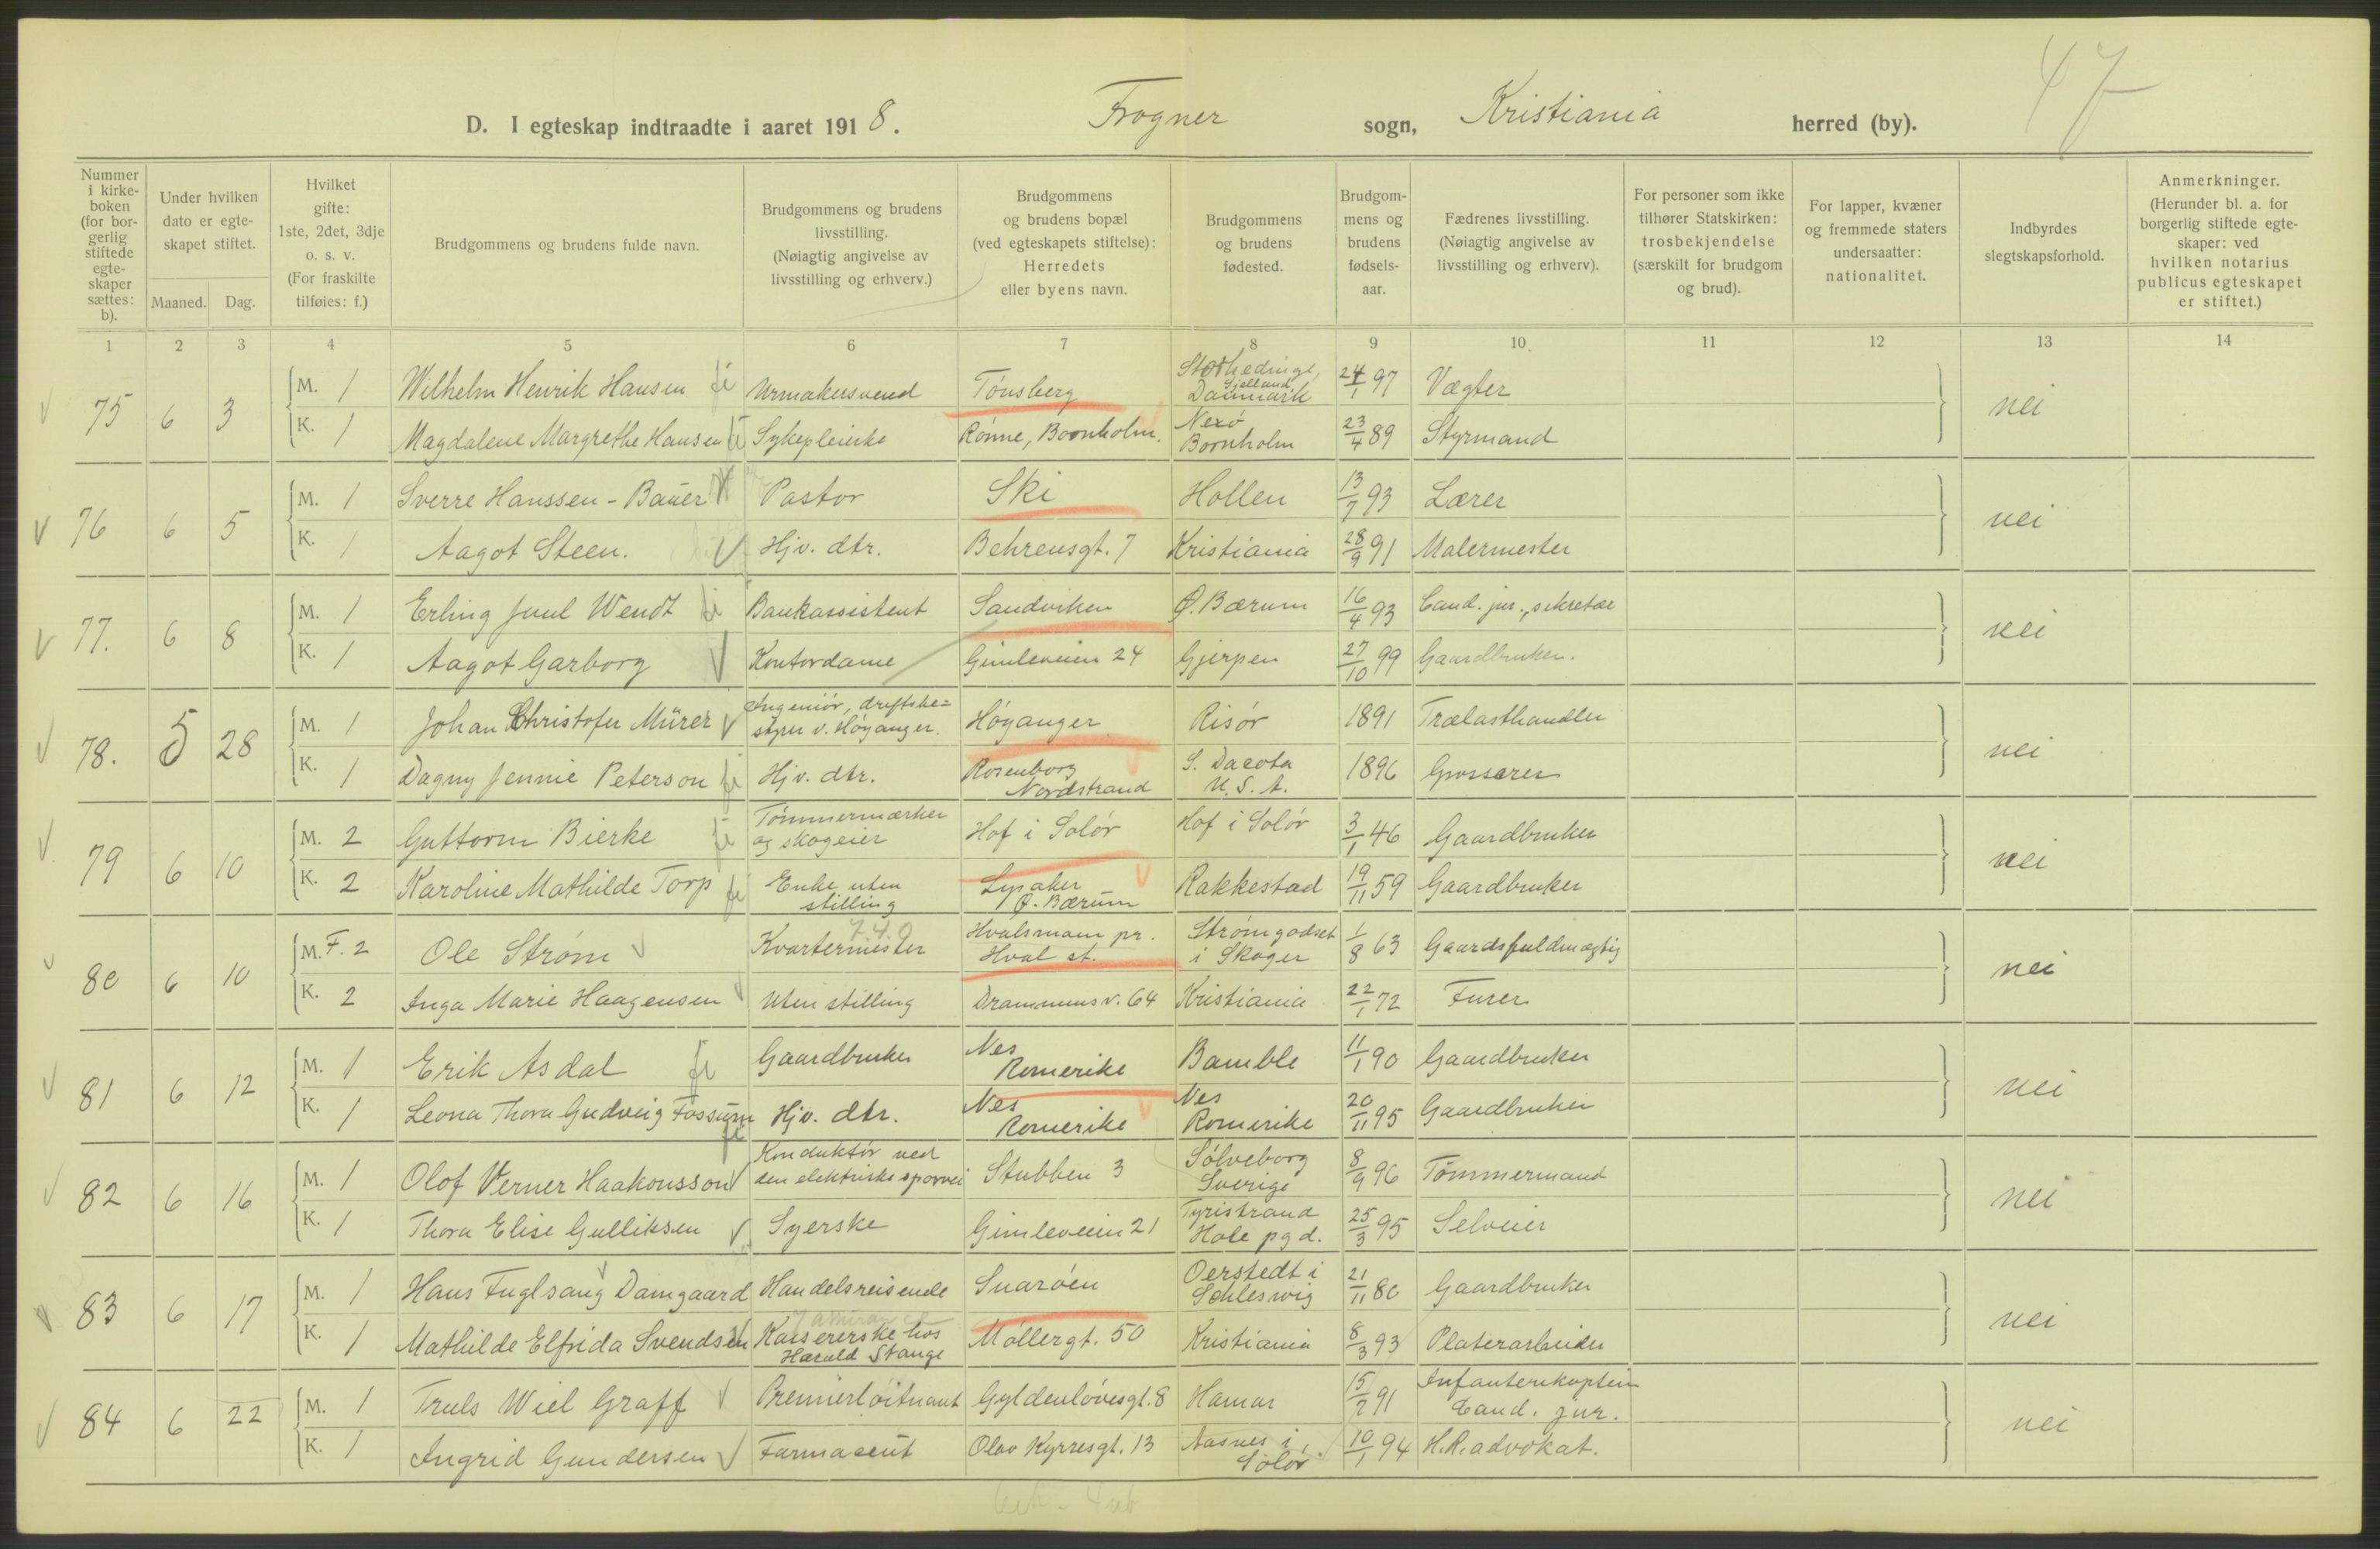 47
D. I egteskap indtraadte i aaret 1918. Frogner sogn, Kristiania herred (by).
Nummer i kirke-boken (for bor-gerlig stiftede egte-skaper sættes: b).
Under hvilken dato er egte-skapet stiftet.
Maaned. Dag.
Hvilket gifte: 1ste, 2det, 3dje o. s. v. (For fraskilte tilføies: f.)
Brudgommens og brudens fulde navn.
Brudgommens og brudens livsstilling. (Nøiagtig angivelse av livsstilling og erhverv.)
Brudgommens og brudens bopæl (ved egteskapets stiftelse): Herredets eller byens navn.
Brudgommens og brudens fødested.
Brudgom-mens og brudens fødsels-aar.
Fædrenes livsstilling. (Nøiagtig angivelse av livsstilling og erhverv).
For personer som ikke tilhører Statskirken: trosbekjendelse (særskilt for brudgom og brud).
For lapper, kvæner og fremmede staters undersaatter: nationalitet.
Indbyrdes slegtskapsforhold.
Anmerkninger. (Herunder bl. a. for borgerlig stiftede egte-skaper: ved hvilken notarius publicus egteskapet er stiftet.)
1 2 3 4 5 6 7 8 9 10 11 12 13 14
75 6 3 M. 1 Wilhelm Henrik Hansen Urmakersvend Tønsberg Storhedinge, Sjelland, Danmark 24/1 97 Vægter nei
K. 1 Magdalene Margrethe Hansen Sykepleierske Rønne, Bornholm. Nexø Bornholm 23/4 89 Styrmand
76 6 5 M. 1 Sverre Hanssen-Bauer Pastor Ski Hollen 13/7 93 Lærer nei
K. 1 Aagot Steen. Hjv. dtr. Behrensgt. 7 Kristiania 28/9 91 Malermester
77. 6 8 M. 1 Erling Juul Wendt Bankassistent Sandviken Ø. Bærum 16/4 93 Cand. jur., sekretær nei
K. 1 Aagot Garborg Kontordame Gimleveien 24 Gjerpen 27/10 99 Gaardbruker.
78. 5 28 M. 1 Johan Christofer Mürer Ingeniør, driftsbe=styrer v. Høyanger. Høyanger Risør 1891 Trælasthandler nei
K. 1 Dagny Jennie Peterson Hjv. dtr. Rosenborg Nordstrand S. Dacota U. S. A. 1896 Grosserer
79 6 10 M. 2 Guttorm Bierke Tømmermærker og skogeier Hof i Solør Hof i Solør 3/1 46 Gaardbruker nei
K. 2 Karoline Mathilde Torp Enke, uten stilling Lysaker Ø. Bærum Rakkestad 19/11 59 Gaardbruker
80 6 10 M. F. 2 Ole Strøm Kvartermester Hvalsmoen pr. Hval st. Strømgodset i Skoger 1/8 63 Gaardsfuldmægtig nei
K. 2 Inga Marie Haagensen Uten stilling Drammensv. 64 Kristiania 22/1 72 Furer
81 6 12 M. 1 Erik Asdal Gaardbruker Nes Romerike Bamble 11/1 90 Gaardbruker nei
K. 1 Leona Thora Gudveig Fossum Hjv. dtr. Nes Romerike Nes Romerike 20/11 95 Gaardbruker
82 6 16 M. 1 Olof Verner Haakonsson Konduktør ved den elektriske sporvei Stubben 3 Sølveborg Sverige 8/9 96 Tømmermand nei
K. 1 Thora Elise Gulliksen Syerske Gimleveien 21 Tyristrand Hole pgd. 25/3 95 Selveier
83 6 17 M. 1 Hans Fuglsang Damgaard Handelsreisende Snarøen Oerstedt i Schleswig 21/11 80 Gaardbruker nei
K. 1 Mathilde Elfrida Svendsen Kassererske hos Harald Stange Møllergt. 50 Kristiania 8/3 93 Platerarbeider
84 6 22 M. 1 Truls Wiel Graff Premierløitnant Gyldenløvesgt. 8 Hamar 15/7 91 Infanterikaptein Cand. jur. nei
K. 1 Ingrid Gundersen Farmaceut Olav Kyrresgt. 13 Aasnes i Solør 10/1 94 H.R.advokat.